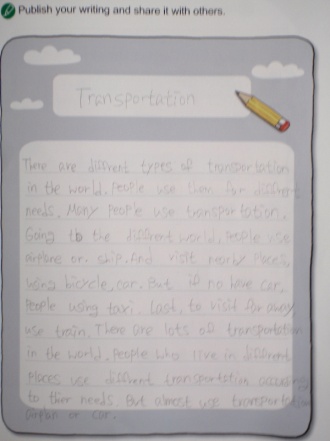 Publish your writing and share it with others.
Transportation
There are different types of transportation
in the world. People use them for different
needs. Many people use transportation.
Going to the different world, people use
airplane or ship. And visit nearly places,
using bicycle, car. But if no have car,
People using taxi. Last, to visit far away,
use train. There are lots of transportation
in the world. People who live in different
places use different transportation according
to their needs. But almost use transportation
airplan or car.